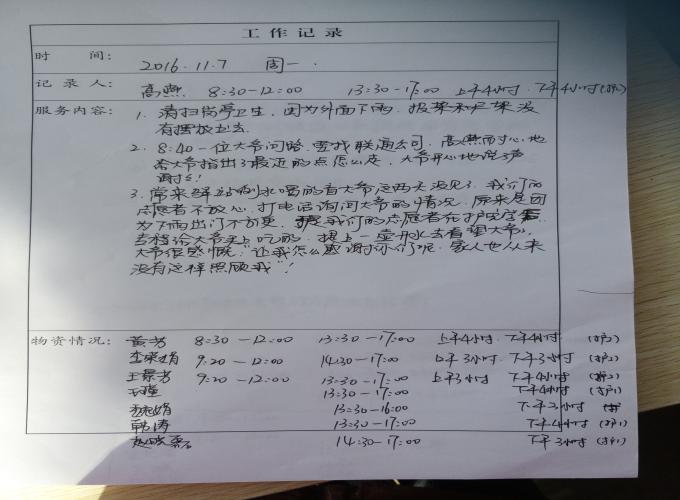 工作记录
时 间: 2016.11.7 周一.
记录人: 高燕 8:30-12:00 13:30-17:00 上午4小时 下午4小时(护2)
服务内容: 1. 清扫岗亭卫生,因为外面下雨,报架和栏架没
有摆放出去.
2. 8:40一位大爷问路,要找联通公司,高燕耐心地
给大爷指出了最近的点怎么走,大爷开心地说了声
谢谢!
3. 常来驿站喝水的百大爷这两天没见了,我们的
志愿者不放心,打电话询问大爷的情况,原来是因
为下雨出门不方便,我们的志愿者在
去给大爷买上吃的,提上一壶开水去看望大爷,
大爷很感慨:"让我怎么感谢你们呢,家人也从来
没有这样照顾我"!
物资情况: 黄芳 8:30-12:00 13:30-17:00 上午4小时 下午4小时 (护2)
李娟 9:20-12:00 14:30-17:00 上午3小时 下午3小时 (护2)
王景芳 9:20-12:00 13:30-17:00 上午3小时 下午4小时 (护2)
13:30-17:00 下午4小时 (护1)
娟 13:30-16:00 下午3小时
韩涛 13:30-17:00 下午4小时 (护1)
赵晓磊 14:30-17:00 下午3小时 (护1)